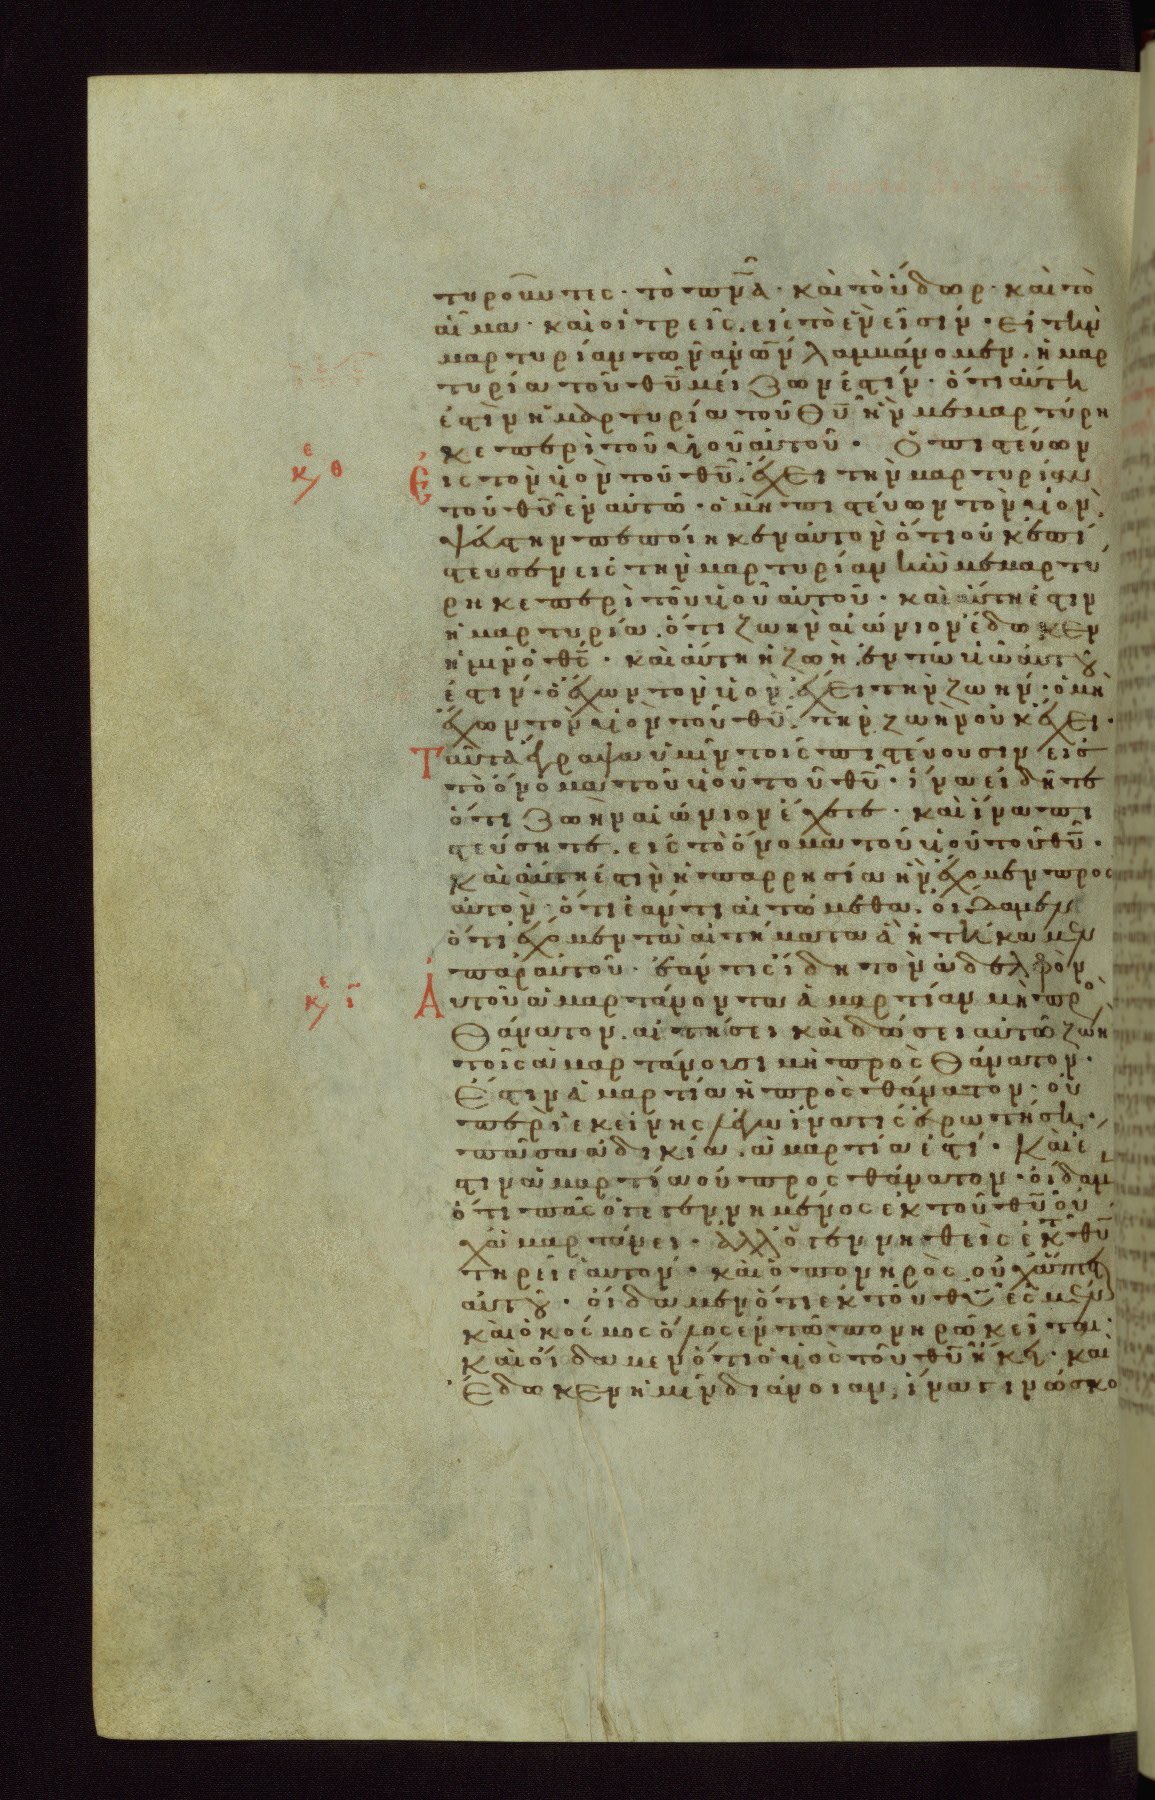 τυροῦντες · τὸ πν̅α̅ · καὶ τὸ ὕδωρ · καὶ τὸ
αἷμα · καὶ οἱ τρεῖς εἰς τὸ ἕν εἰσιν · εἰ τὴν
μαρτυρίαν τῶν ἀν̅ω̅ν̅ λαμβάνομεν · ἡ μαρ
τυρία τοῦ θ̅υ̅ μείζων ἐστίν · ὅτι αὕτη
ἐστὶν ἡ μαρτυρία τοῦ θ̅υ̅ ἣν μεμαρτύρη
κε περὶ τοῦ υἱοῦ αὐτοῦ · ὁ πιστεύων
κε θ εἰς τὸν υἱὸν τοῦ θ̅υ̅ · ἔχει τὴν μαρτυρίαν
τοῦ θ̅υ̅ ἐν αὐτῶ · ὁ μὴ πιστεύων τὸν υἱὸν
ψεύστην πεποίηκεν αὐτὸν ὅτι οὐκ ἐπί
στευσεν εἰς τὴν μαρτυρίαν ἣν μεμαρτύ
ρηκε περὶ τοῦ υἱοῦ αὐτοῦ · καὶ αὕτη ἐστιν
ἡ μαρτυρία · ὅτι ζωὴν αἰώνιον ἔδωκεν
ἡμῖν ὁ θ̅ς̅ · καὶ αὕτη ἡ ζωὴ ἐν τῶ υἱῶ αὐτοῦ
ἐστίν · ὁ ἔχων τὸν υἱὸν ἔχει τὴν ζωήν · ὁ μὴ
ἔχων τὸν υἱὸν τοῦ θ̅υ̅ · τὴν ζωὴν οὐκ ἔχει ·
Ταῦτα ἔγραψα ὑμῖν τοῖς πιστεύουσιν εἰς
τὸ ὄνομα τοῦ υἱοῦ τοῦ θ̅υ̅ · ἵνα εἰδῆτε
ὅτι ζωὴν αἰώνιον ἔχετε · καὶ ἵνα πι
στεύσητε · εἰς τὸ ὄνομα τοῦ υἱοῦ τοῦ θ̅υ̅ ·
καὶ αὕτη ἐστὶν ἡ παρρησία ἣν ἔχομεν προς
αὐτὸν · ὅτι ἐάν τι αἰτώμεθα · οἴδαμεν
ὅτι ἔχομεν τὰ αἰτήματα ἃ ἠτήκαμεν
παρ αὐτοῦ · ἐάν τις ἴδη τὸν ἀδελφὸν
κε ι Αὐτοῦ ἁμαρτάνοντα ἁμαρτίαν μὴ προς
θάνατον · αἰτήσει καὶ δώσει αὐτῶ ζωὴν
τοῖς ἁμαρτάνουσι μὴ πρὸς θάνατον ·
Ἔστιν ἁμαρτία ἡ πρὸς θάνατον · οὐ
περὶ ἐκείνης λέγω ἵνα τις ἐρωτήση ·
πᾶσα ἀδικία · ἁμαρτία ἐστί · Καὶ ἔ
στιν ἁμαρτία οὐ προς θάνατον · οἴδαμεν
ὅτι πᾶς ὁ γεγεννημένος ἐκ τοῦ θ̅υ̅ οὐ
χ ἁμαρτάνει · ἀλλ ὁ γεννηθεὶς ἐκ τοῦ θ̅υ̅
τηρεῖ ἑαυτὸν · καὶ ὁ πονηρὸς οὐχ ἅπτεται
αὐτοῦ · οἴδαμεν ὅτι ἐκ τοῦ θ̅υ̅ ἐσμὲν
καὶ ὁ κόσμος ὅλος ἐν τῶ πονηρῶ κεῖται ·
καὶ οἴδαμεν ὅτι ὁ υἱὸς τοῦ θ̅υ̅ ἥκει · καὶ
Ἔδωκεν ἡμῖν διάνοιαν · ἵνα γινώσκο